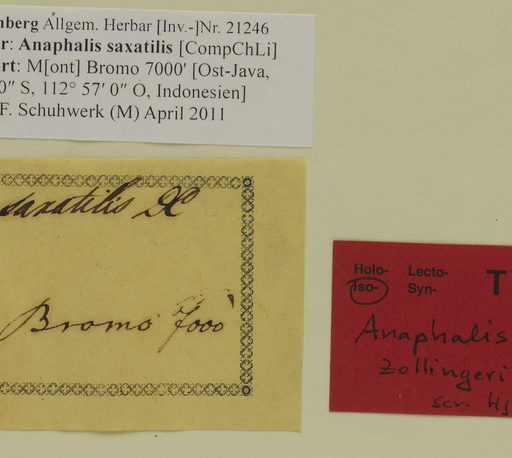 nberg Allgem. Herbar [Inv.-]Nr. 21246
r: Anaphalis saxatilis [CompChLi]
rt: M[ont] Bromo 7000' [Ost-Java,
0" S, 112° 57' 0" O, Indonesien]
F. Schuhwerk (M) April 2011
saxatilis
Bromo 7000'
Holo- Lecto- T
Iso- Syn-
Anaphalis
Zollingeri
scr. Hj